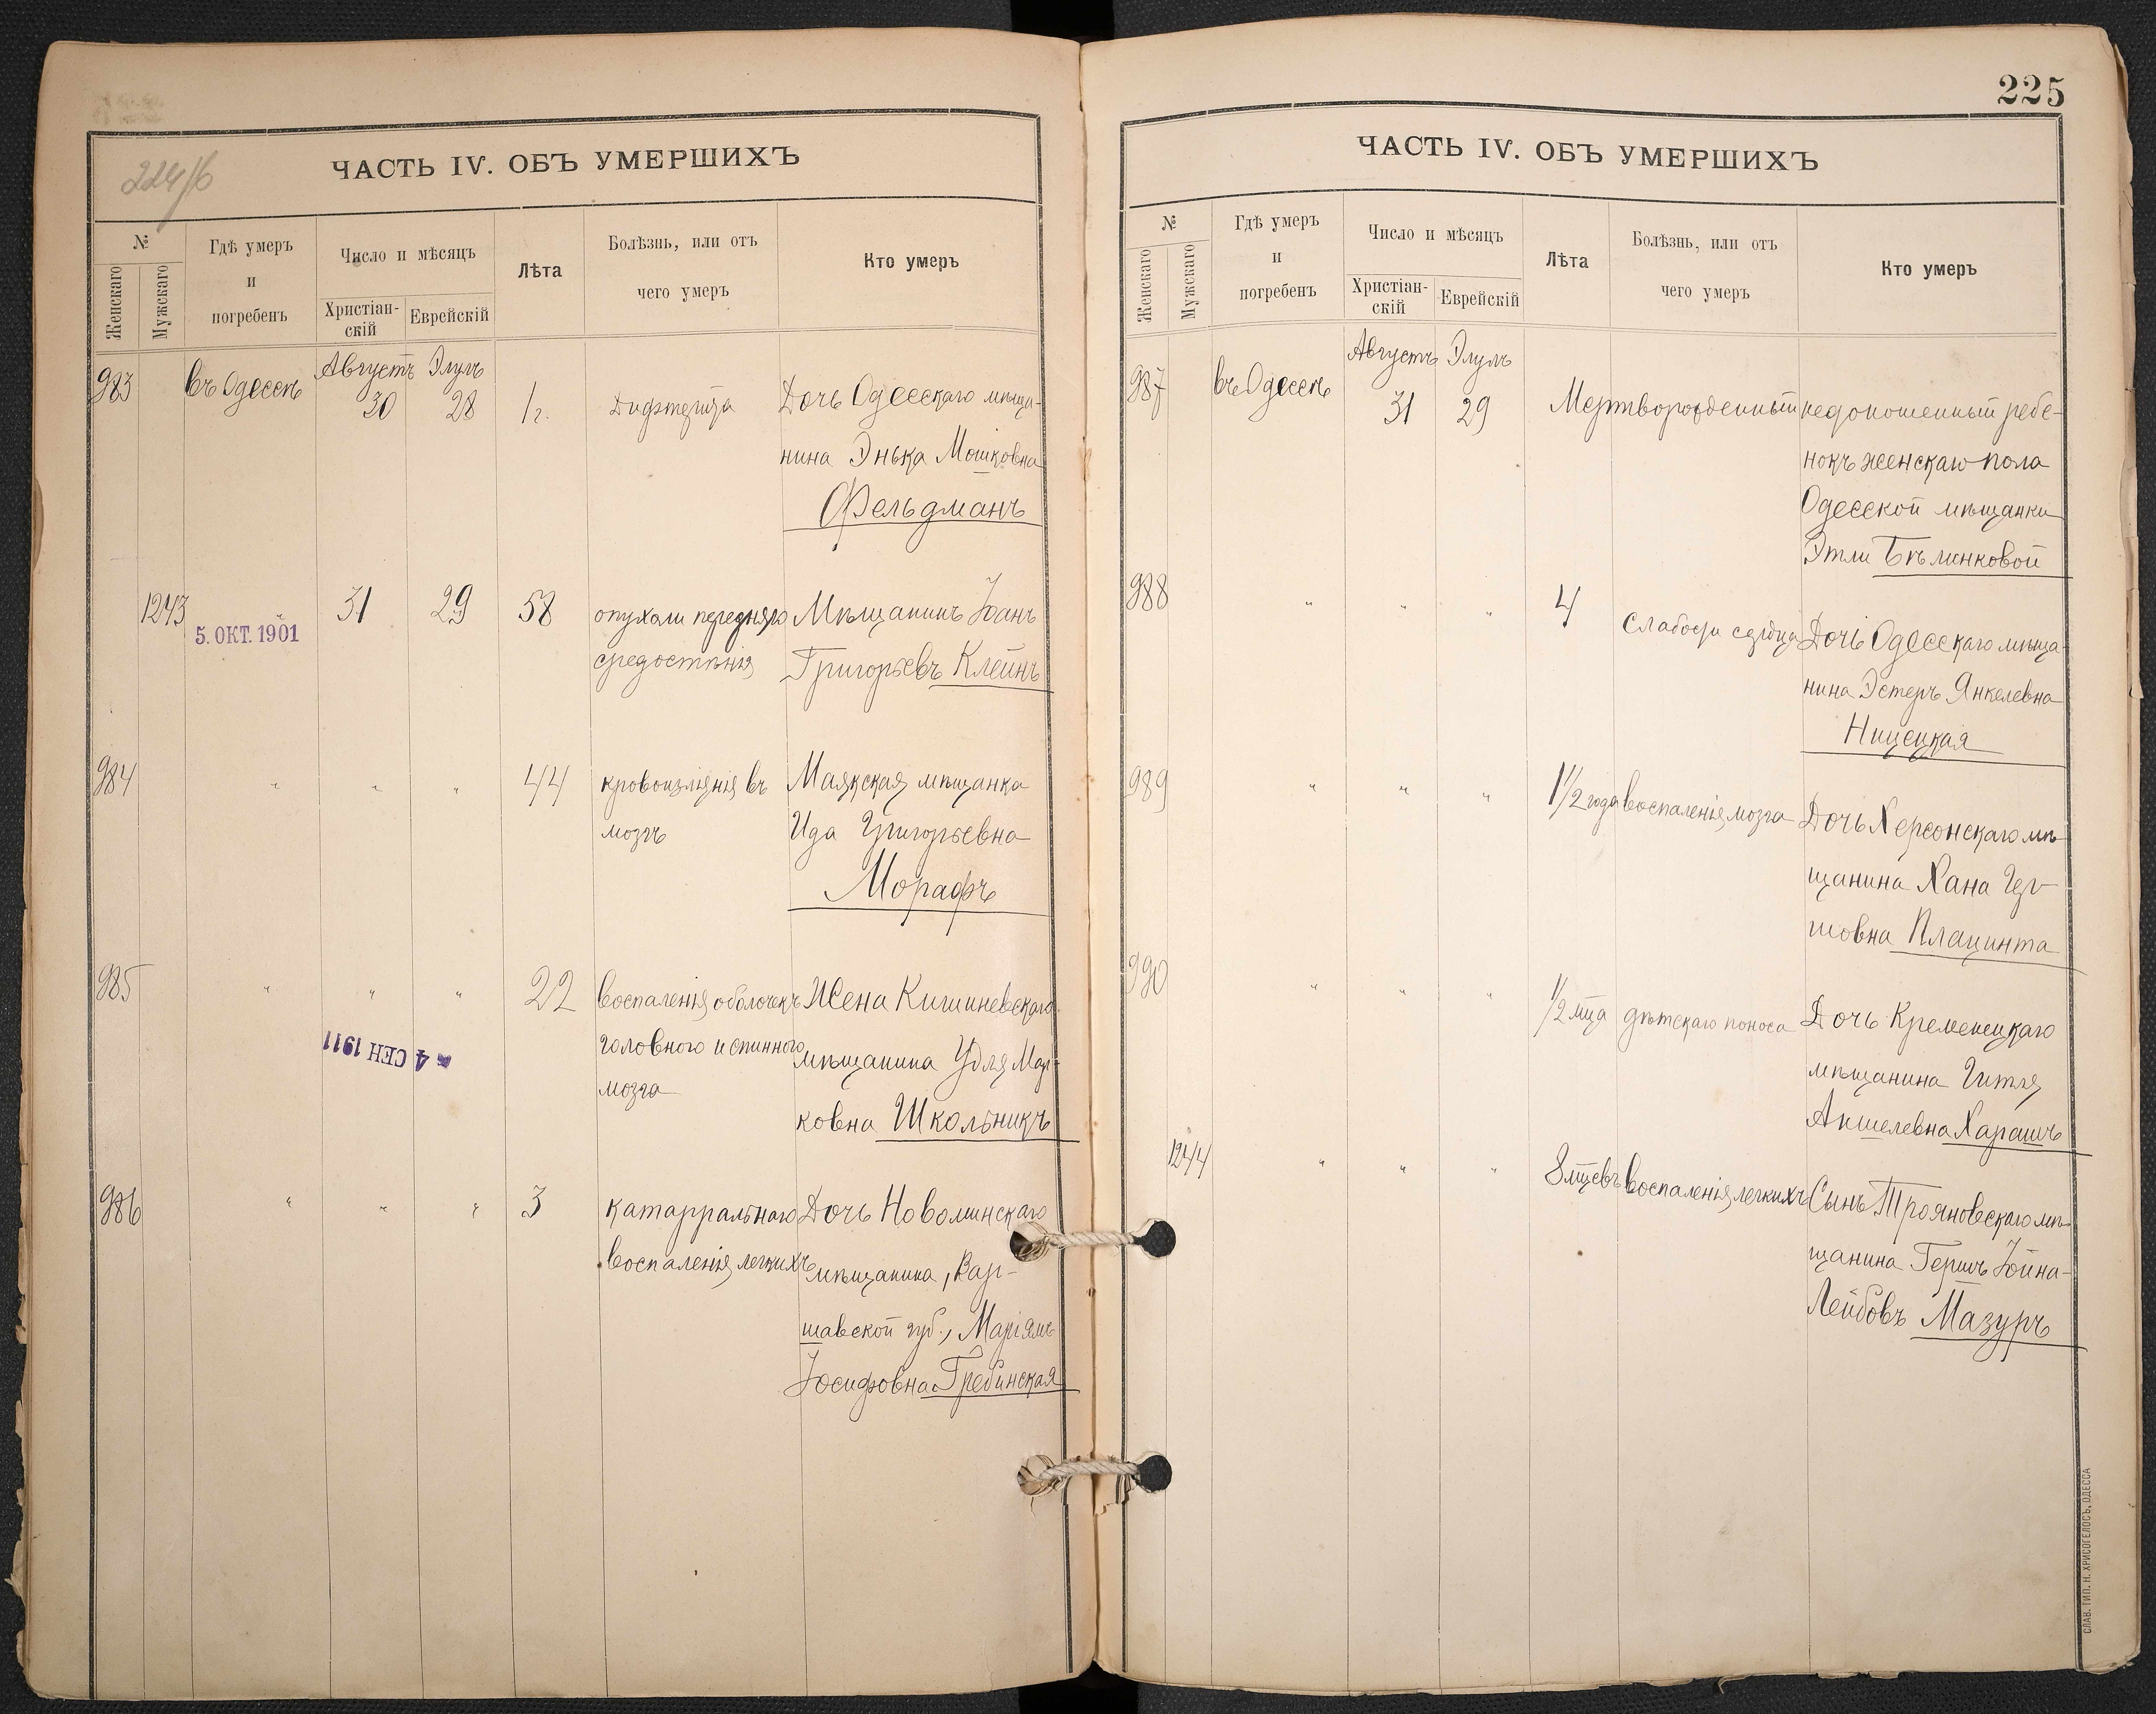 224/б
ЧАСТЬ IV. ОБЪ УМЕРШИХЪ
№
Женскаго
Мужскаго
Гдѣ умеръ
и
погребенъ
Число и мѣсяцъ
Христіан-
скій
Еврейскій
Лѣта
Болѣзнь, или отъ
чего умеръ
Кто умеръ
983
въ Одессѣ
Августъ
30
Элулъ
28
1 г.
Дифтерита
Дочь Одесскаго мѣща-
нина Энька Мошковна
Фельдманъ
1243
"
5. ОКТ. 1901
31
29
58
опухоли передняго
средостѣнія
Мѣщанинъ Іоанъ
Григорьевъ Клейнъ
984
"
"
"
44
кровоизліянія въ
мозгъ
Маякская мѣщанка
Ида Григорьевна
Морафъ
985
"
"
"
4 СЕН 1911
22
воспаленія оболочекъ
головного и спинного
мозга
Жена Кишиневскаго
мѣщанина Удля Мар-
ковна Школьникъ
986
"
"
"
3
катарральнаго
воспаленія легкихъ
Дочь Новоминскаго
мѣщанина, Вар-
шавской губ., Маріямъ
Іосифовна Гребинская
225
ЧАСТЬ IV. ОБЪ УМЕРШИХЪ
№
Женскаго
Мужскаго
Гдѣ умеръ
и
погребенъ
Число и мѣсяцъ
Христіан-
скій
Еврейскій
Лѣта
Болѣзнь, или отъ
чего умеръ
Кто умеръ
987
въ Одессѣ
Августъ
31
Элулъ
29
Мертворожденный недоношенный ребе-
нокъ женскаго пола
Одесской мѣщанки
Этли Бѣлинковой
988
"
"
"
4
Слабости сердца
Дочь Одесскаго мѣща-
нина Эстеръ Янкелевна
Ницецкая
989
"
"
"
1 1/2 года
воспаленія мозга
Дочь Херсонскаго мѣ-
щанина Хана Гер-
шовна Плацинта
990
"
"
"
1/2 мца
дѣтскаго поноса
Дочь Кременецкаго
мѣщанина Гитля
Аншелевна Харашъ
1244
"
"
"
8 мцевъ
воспаленія легкихъ
Сынъ Трояновскаго мѣ-
щанина Гершъ Іойна-
Лейбовъ Мазуръ
СЛАВ. ТИП. Н. ХРИСОГЕЛОСЪ, ОДЕССА